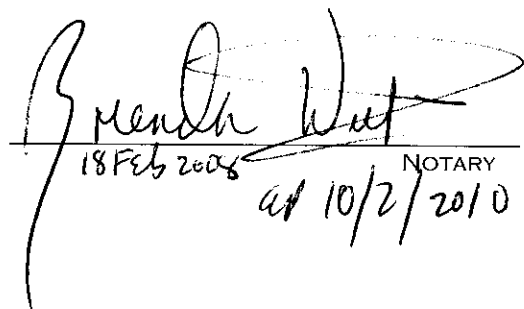 Brenda Witt
18 Feb 2008
NOTARY
10/2/2010